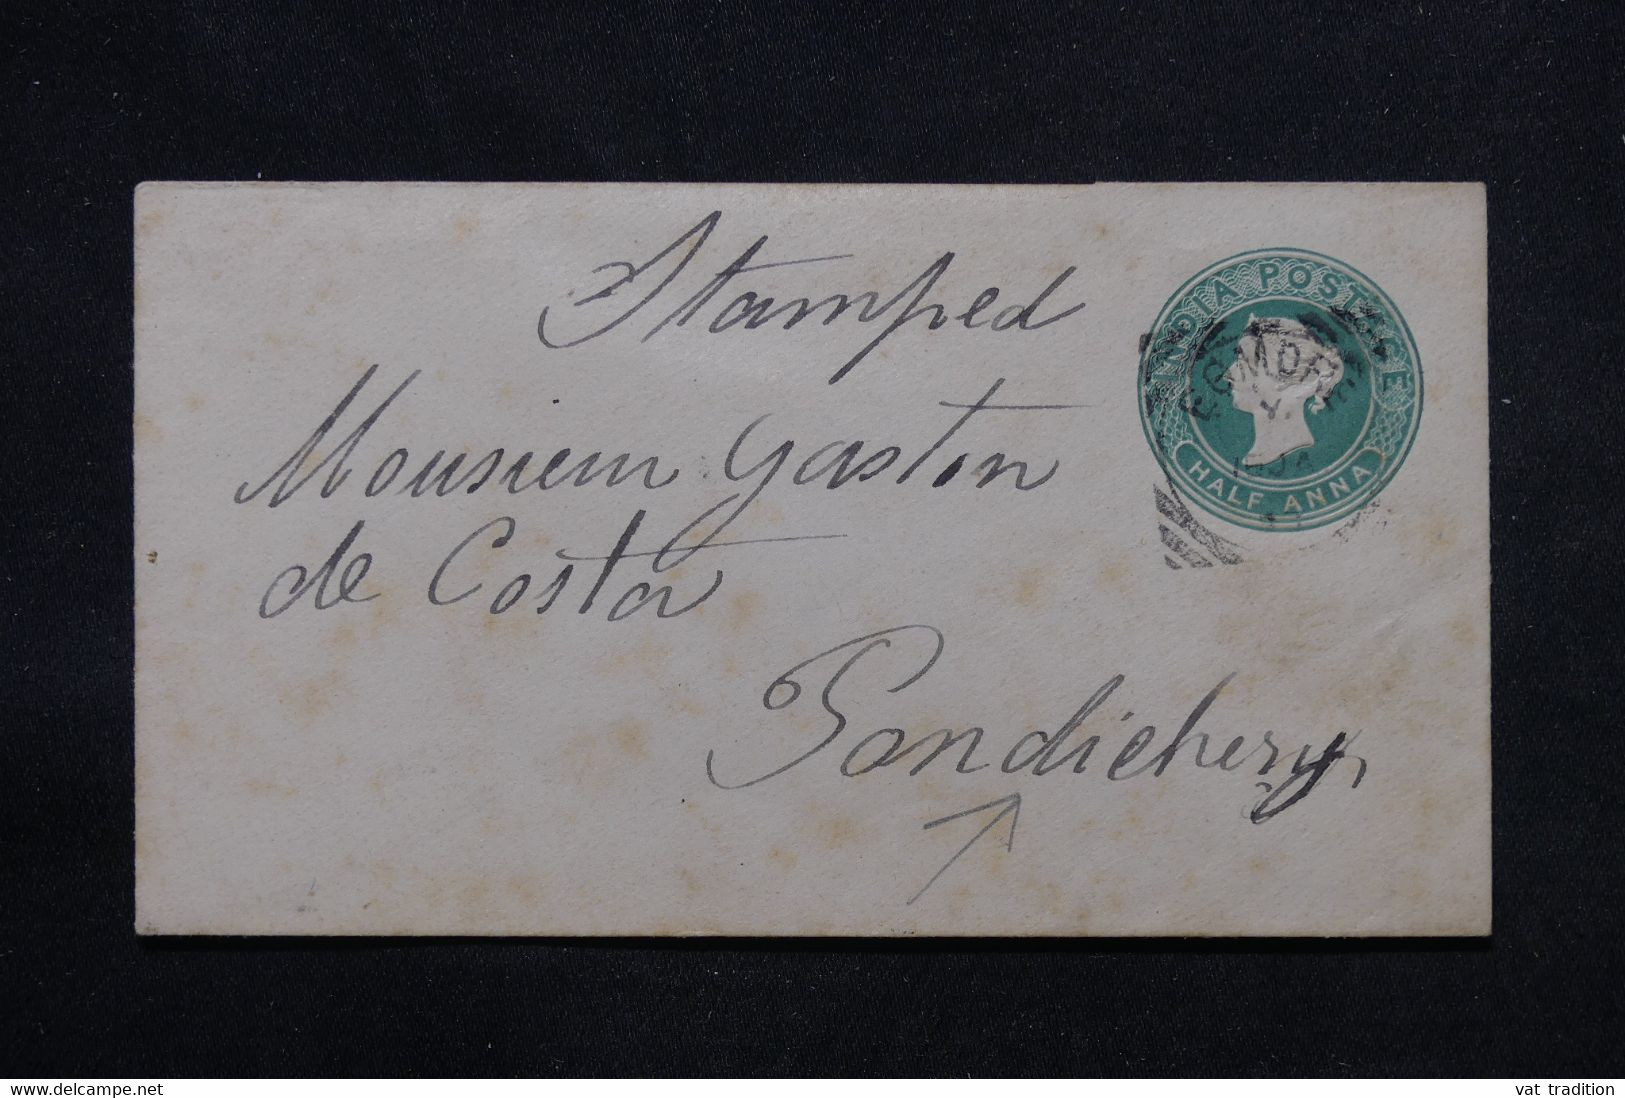 Stamped
INDIA POSTAGE
EGMORE
HALF ANNA
Monsieur Gaston
de Costa
Pondichery
www.delcampe.net
vat tradition